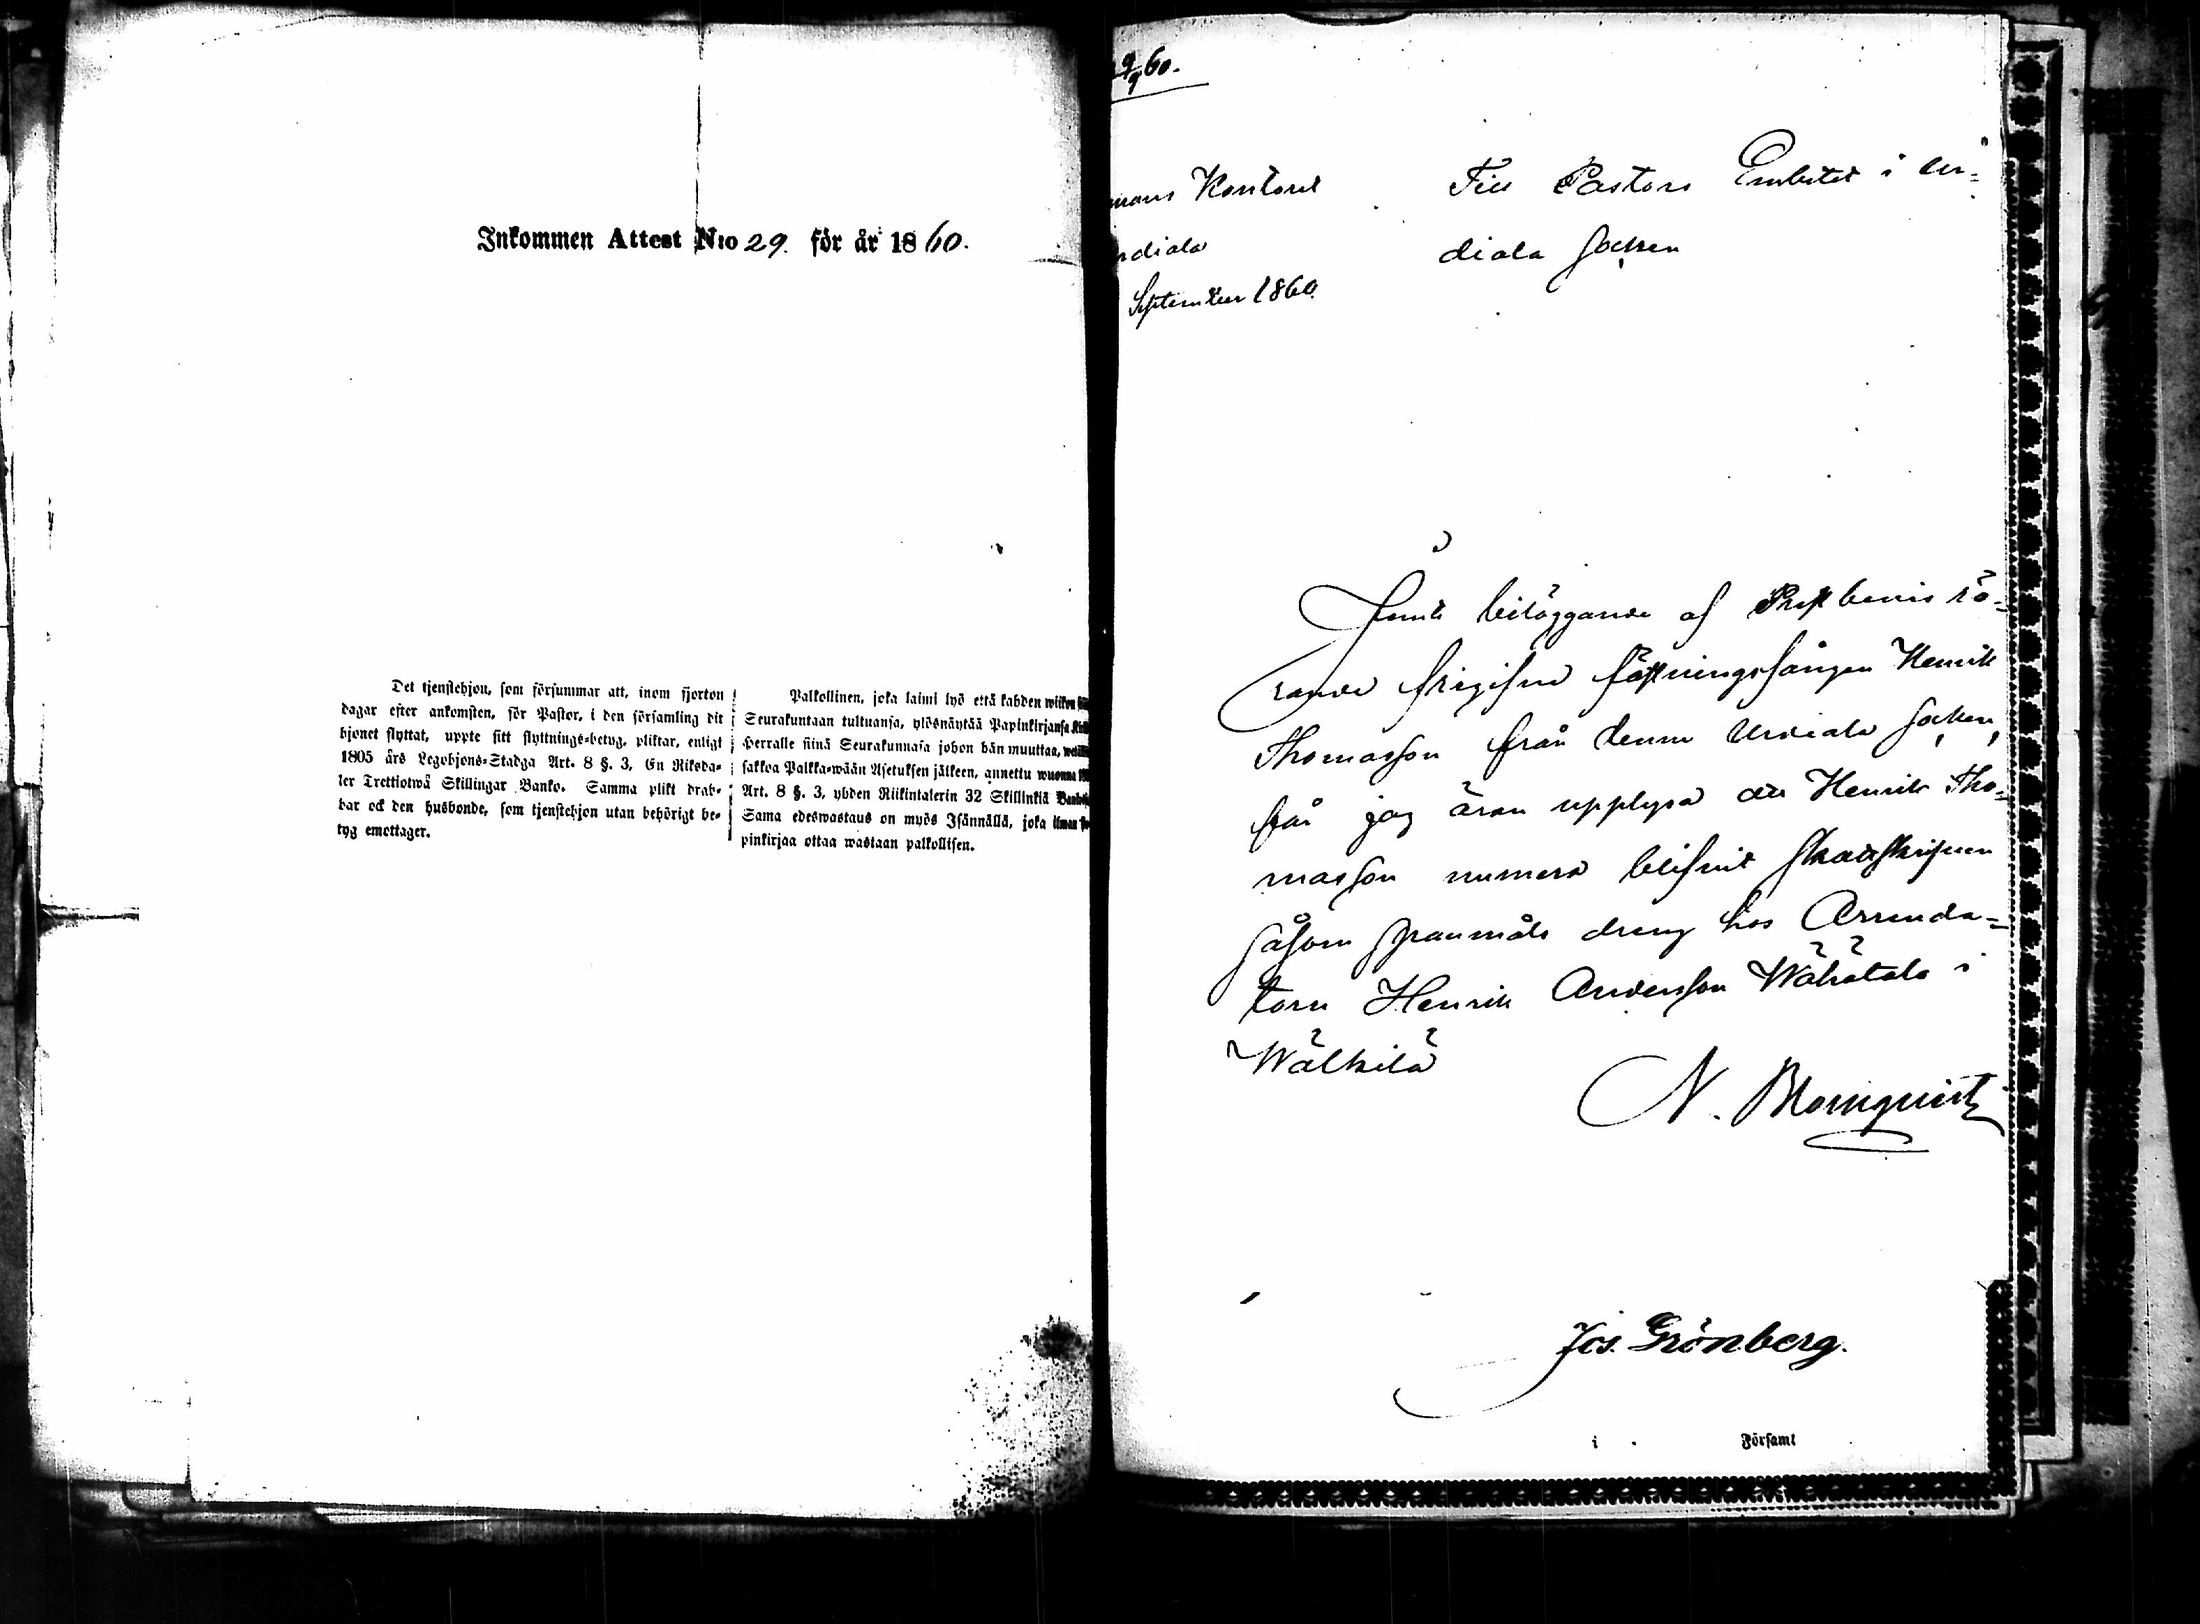 Inkommen Attest N:o 29. för år 1860.
Det tjenstehjon, som försummar att, inom fjorton
dagar efter ankomsten, för Pastor, i den församling dit
hjonet flyttat, uppte sitt flyttnings-betyg, pliktar, enligt
1805 års Legohjons-Stadga Art. 8 §. 3, En Riksda-
ler Trettiotwå Skillingar Banko. Samma plikt drab-
bar ock den husbonde, som tjenstehjon utan behörigt be-
tyg emottager.
Palkollinen, joka laimi lyö että kahden wiikon
Seurakuntaan tultuansa, ylösnäytää Papinkirjansa
Herralle siinä Seurakunnasa johon hän muuttaa,
sakkoa Palkka-wään Asetuksen jälkeen, annettu wuonna
Art. 8 §. 3, yhden Riikintalerin 32 Skillinkiä
Sama edeswastaus on myös Isännällä, joka ilman
pinkirjaa ottaa wastaan palkollisen.
9/9 60.
mans Kontoret
rdiala
September 1860.
Till Pastors Embetet i Ur=
diala Socken
Jemte biläggande af Prestbevis rö=
rande frigifne fästningsfången Henrik
Thomasson från denne Urdiala Socken,
får jag äran upplysa att Henrik Tho=
masson numera blifvit skattskrifven
såsom spanmåls dreng hos Arrenda=
torn Henrik Andersson Wähätalo i
Wälkilä
N. Blomqvist
Jos. Grönberg.
i
Församl